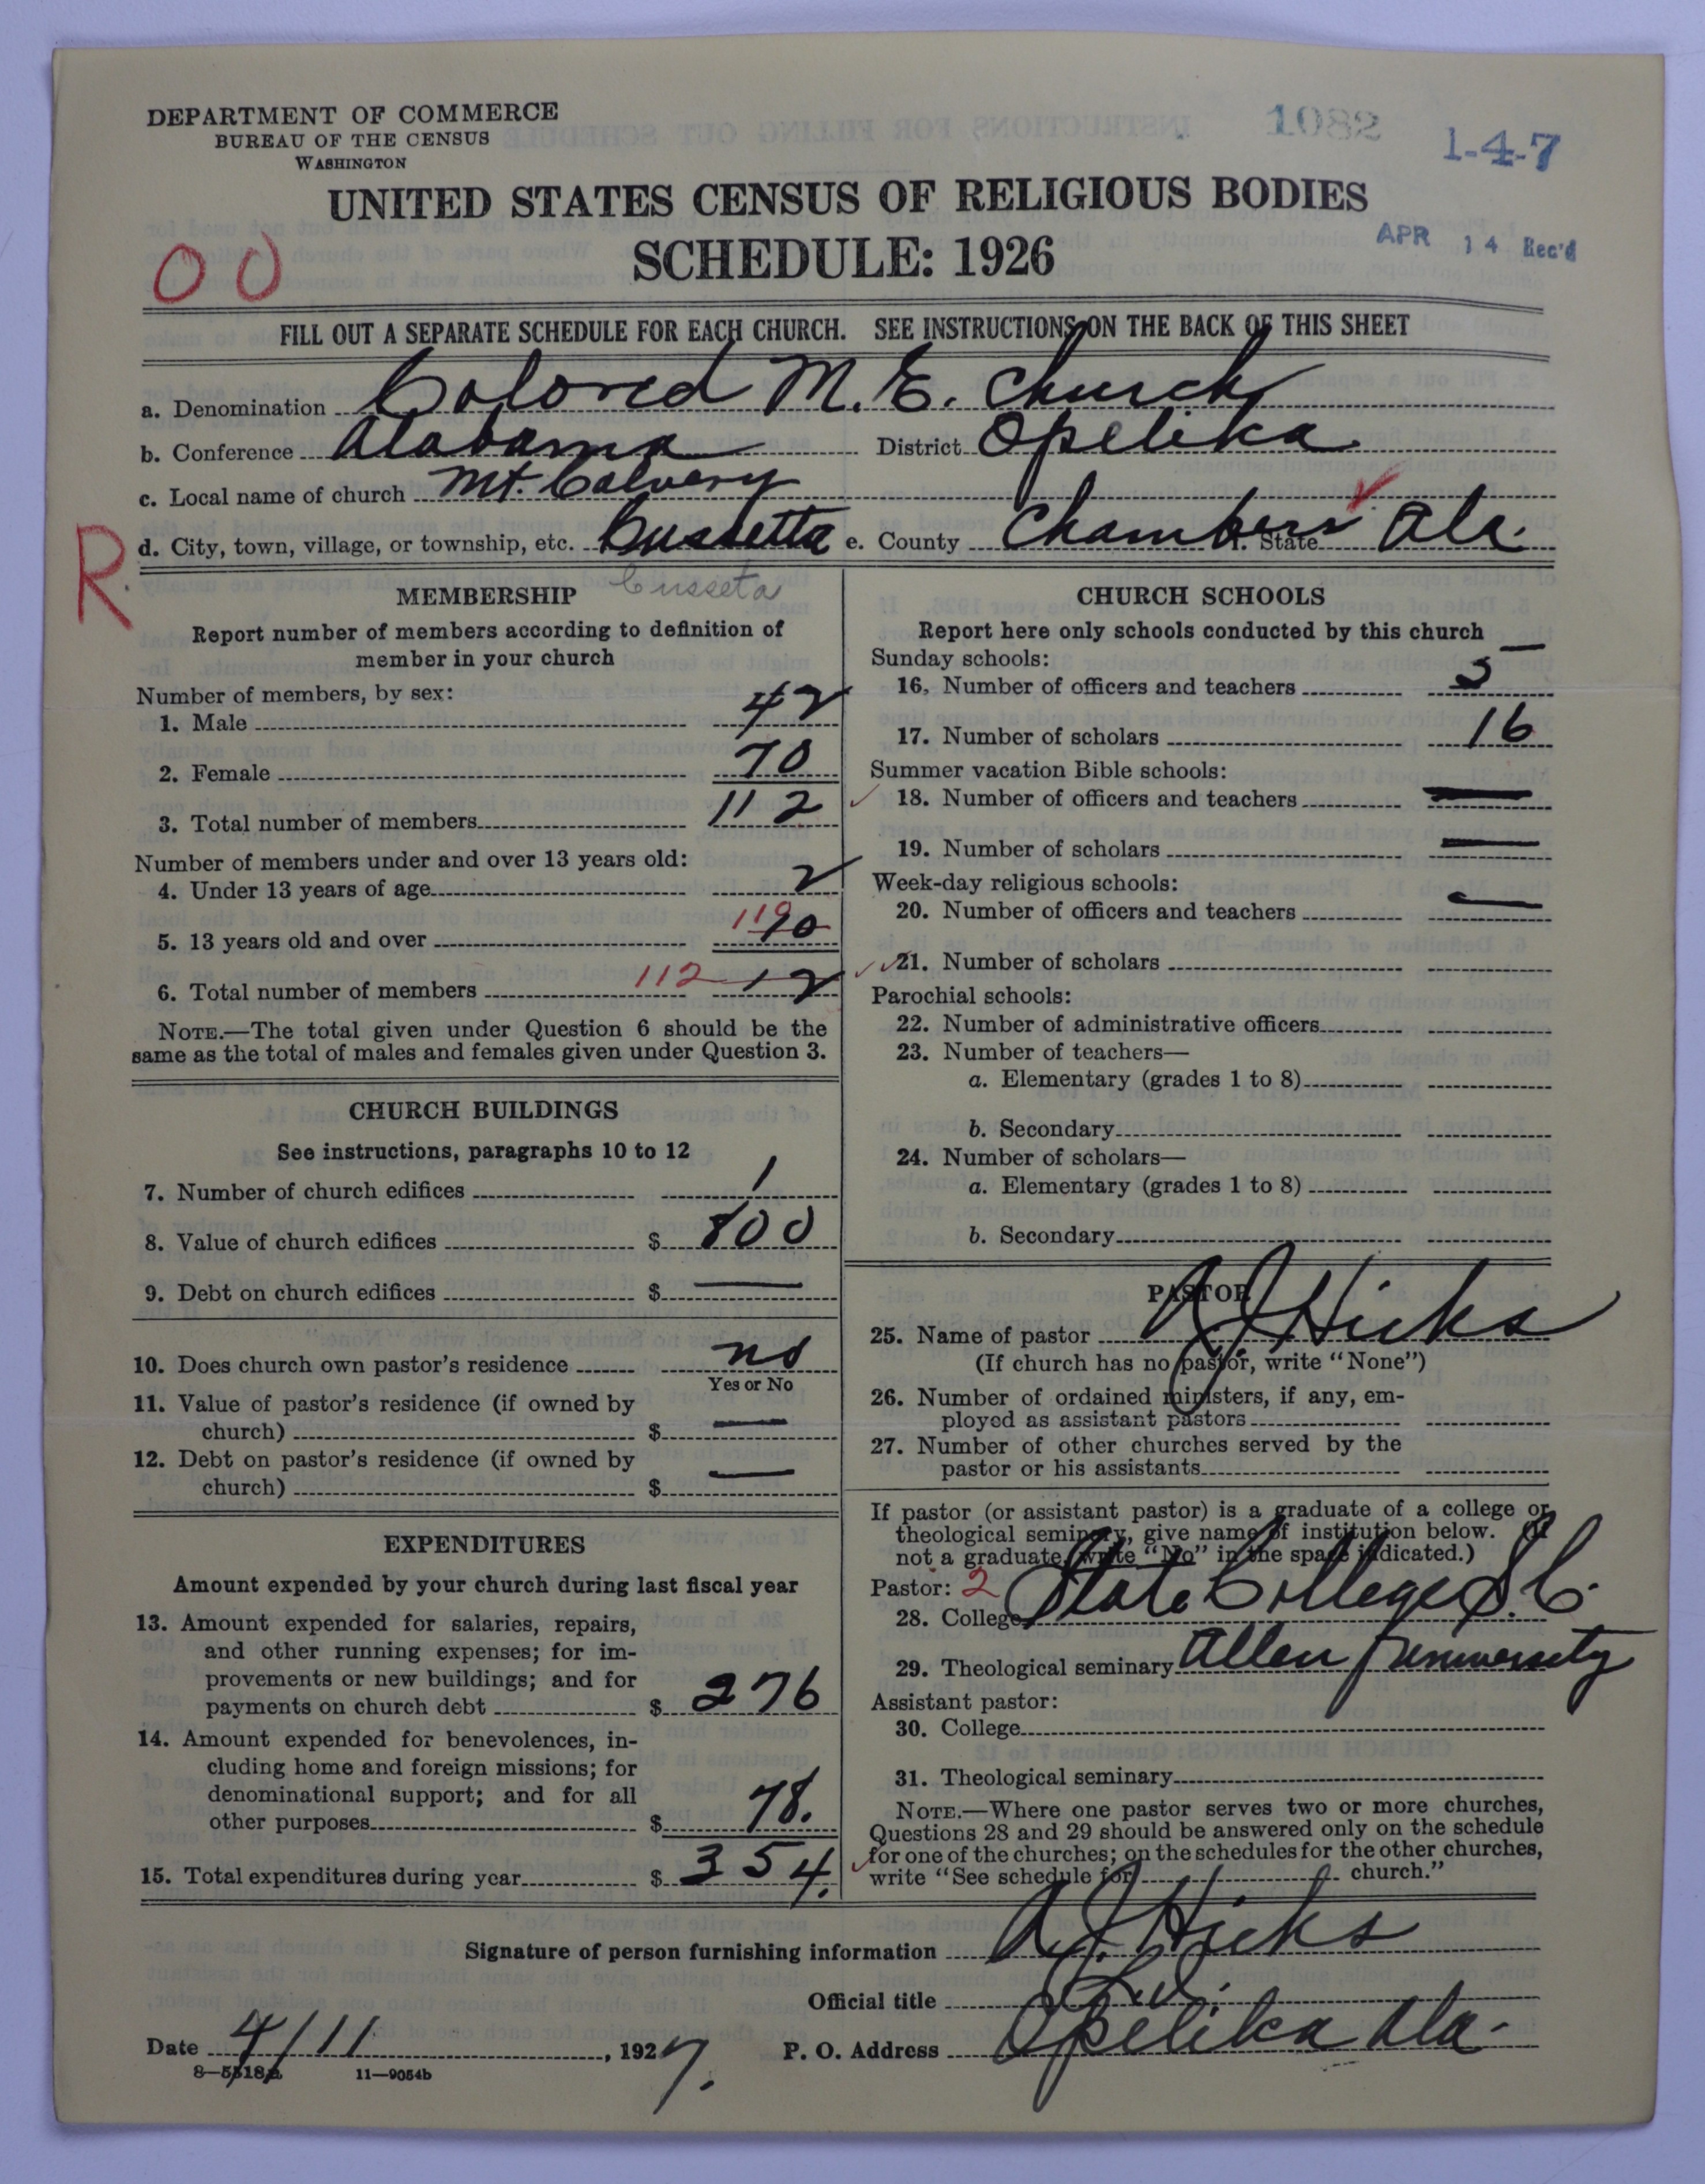 DEPARTMENT OF COMMERCE
BUREAU OF THE CENSUS
WASHINGTON
1082
1-4-7
UNITED STATES CENSUS OF RELIGIOUS BODIES
SCHEDULE: 1926
APR 14 Rec'd
00
FILL OUT A SEPARATE SCHEDULE FOR EACH CHURCH. SEE INSTRUCTIONS ON THE BACK OF THIS SHEET
a. Denomination Colored M. E. Church
b. Conference Alabama District Opelika
c. Local name of church Mt. Calvery
R
d. City, town, village, or township, etc. Cussetta e. County Chambers f. State Ala.
Cusseta
MEMBERSHIP
Report number of members according to definition of
member in your church
Number of members, by sex:
1. Male 42
2. Female 70
3. Total number of members 112
Number of members under and over 13 years old:
4. Under 13 years of age 2
5. 13 years old and over 110
6. Total number of members 112 12
NOTE.—The total given under Question 6 should be the
same as the total of males and females given under Question 3.
CHURCH BUILDINGS
See instructions, paragraphs 10 to 12
7. Number of church edifices 1
8. Value of church edifices $ 800
9. Debt on church edifices $ —
10. Does church own pastor's residence no
Yes or No
11. Value of pastor's residence (if owned by
church) $ —
12. Debt on pastor's residence (if owned by
church) $ —
EXPENDITURES
Amount expended by your church during last fiscal year
13. Amount expended for salaries, repairs,
and other running expenses; for im-
provements or new buildings; and for
payments on church debt $ 276
14. Amount expended for benevolences, in-
cluding home and foreign missions; for
denominational support; and for all
other purposes $ 78.
15. Total expenditures during year $ 354.
CHURCH SCHOOLS
Report here only schools conducted by this church
Sunday schools:
16. Number of officers and teachers 5
17. Number of scholars 16
Summer vacation Bible schools:
18. Number of officers and teachers —
19. Number of scholars —
Week-day religious schools:
20. Number of officers and teachers —
21. Number of scholars
Parochial schools:
22. Number of administrative officers
23. Number of teachers—
a. Elementary (grades 1 to 8)
b. Secondary
24. Number of scholars—
a. Elementary (grades 1 to 8)
b. Secondary
PASTOR
25. Name of pastor A J Hicks
(If church has no pastor, write "None")
26. Number of ordained ministers, if any, em-
ployed as assistant pastors
27. Number of other churches served by the
pastor or his assistants
If pastor (or assistant pastor) is a graduate of a college or
theological seminary, give name of institution below. (If
not a graduate, write "No" in the space indicated.)
Pastor: 2
28. College State College S.C.
29. Theological seminary Allen University
Assistant pastor:
30. College
31. Theological seminary
NOTE.—Where one pastor serves two or more churches,
Questions 28 and 29 should be answered only on the schedule
for one of the churches; on the schedules for the other churches,
write "See schedule for church."
Signature of person furnishing information A J. Hicks
Official title
Date 4/11, 1927.
P. O. Address Opelika Ala.
8—5518a 11—9054b